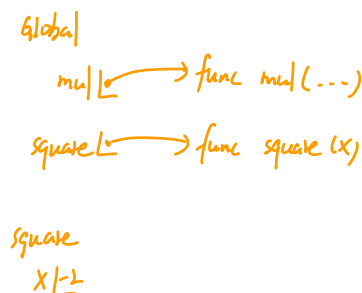 Global
mul func mul (...)
square func square (x)
square
x -2